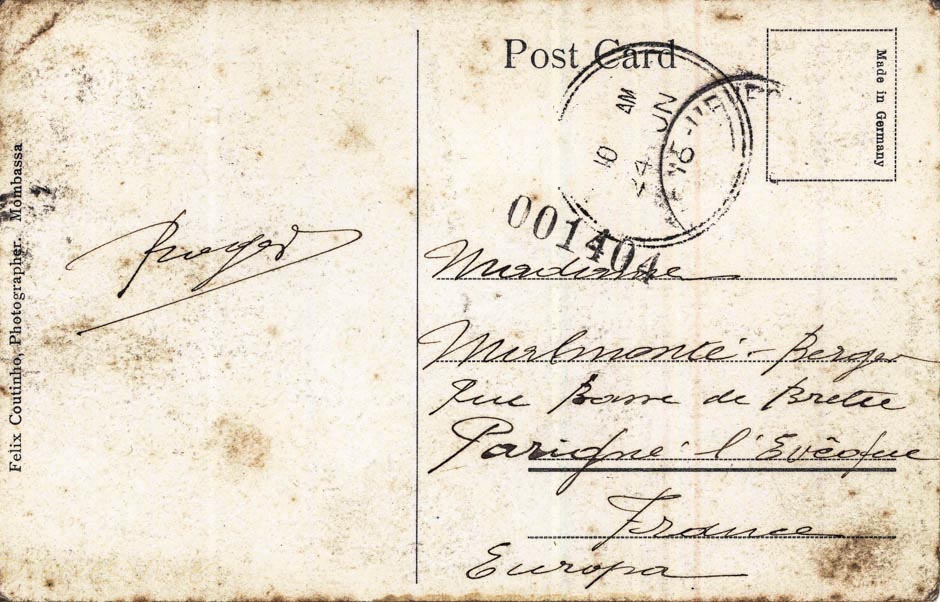 Post Card
Made in Germany
10 AM
24 JN
15
001404
Felix Coutinho, Photographer. Mombassa
Madame
Malmonté-Berger
Rue Basse de
Parigné l'Evêque
France
Europa